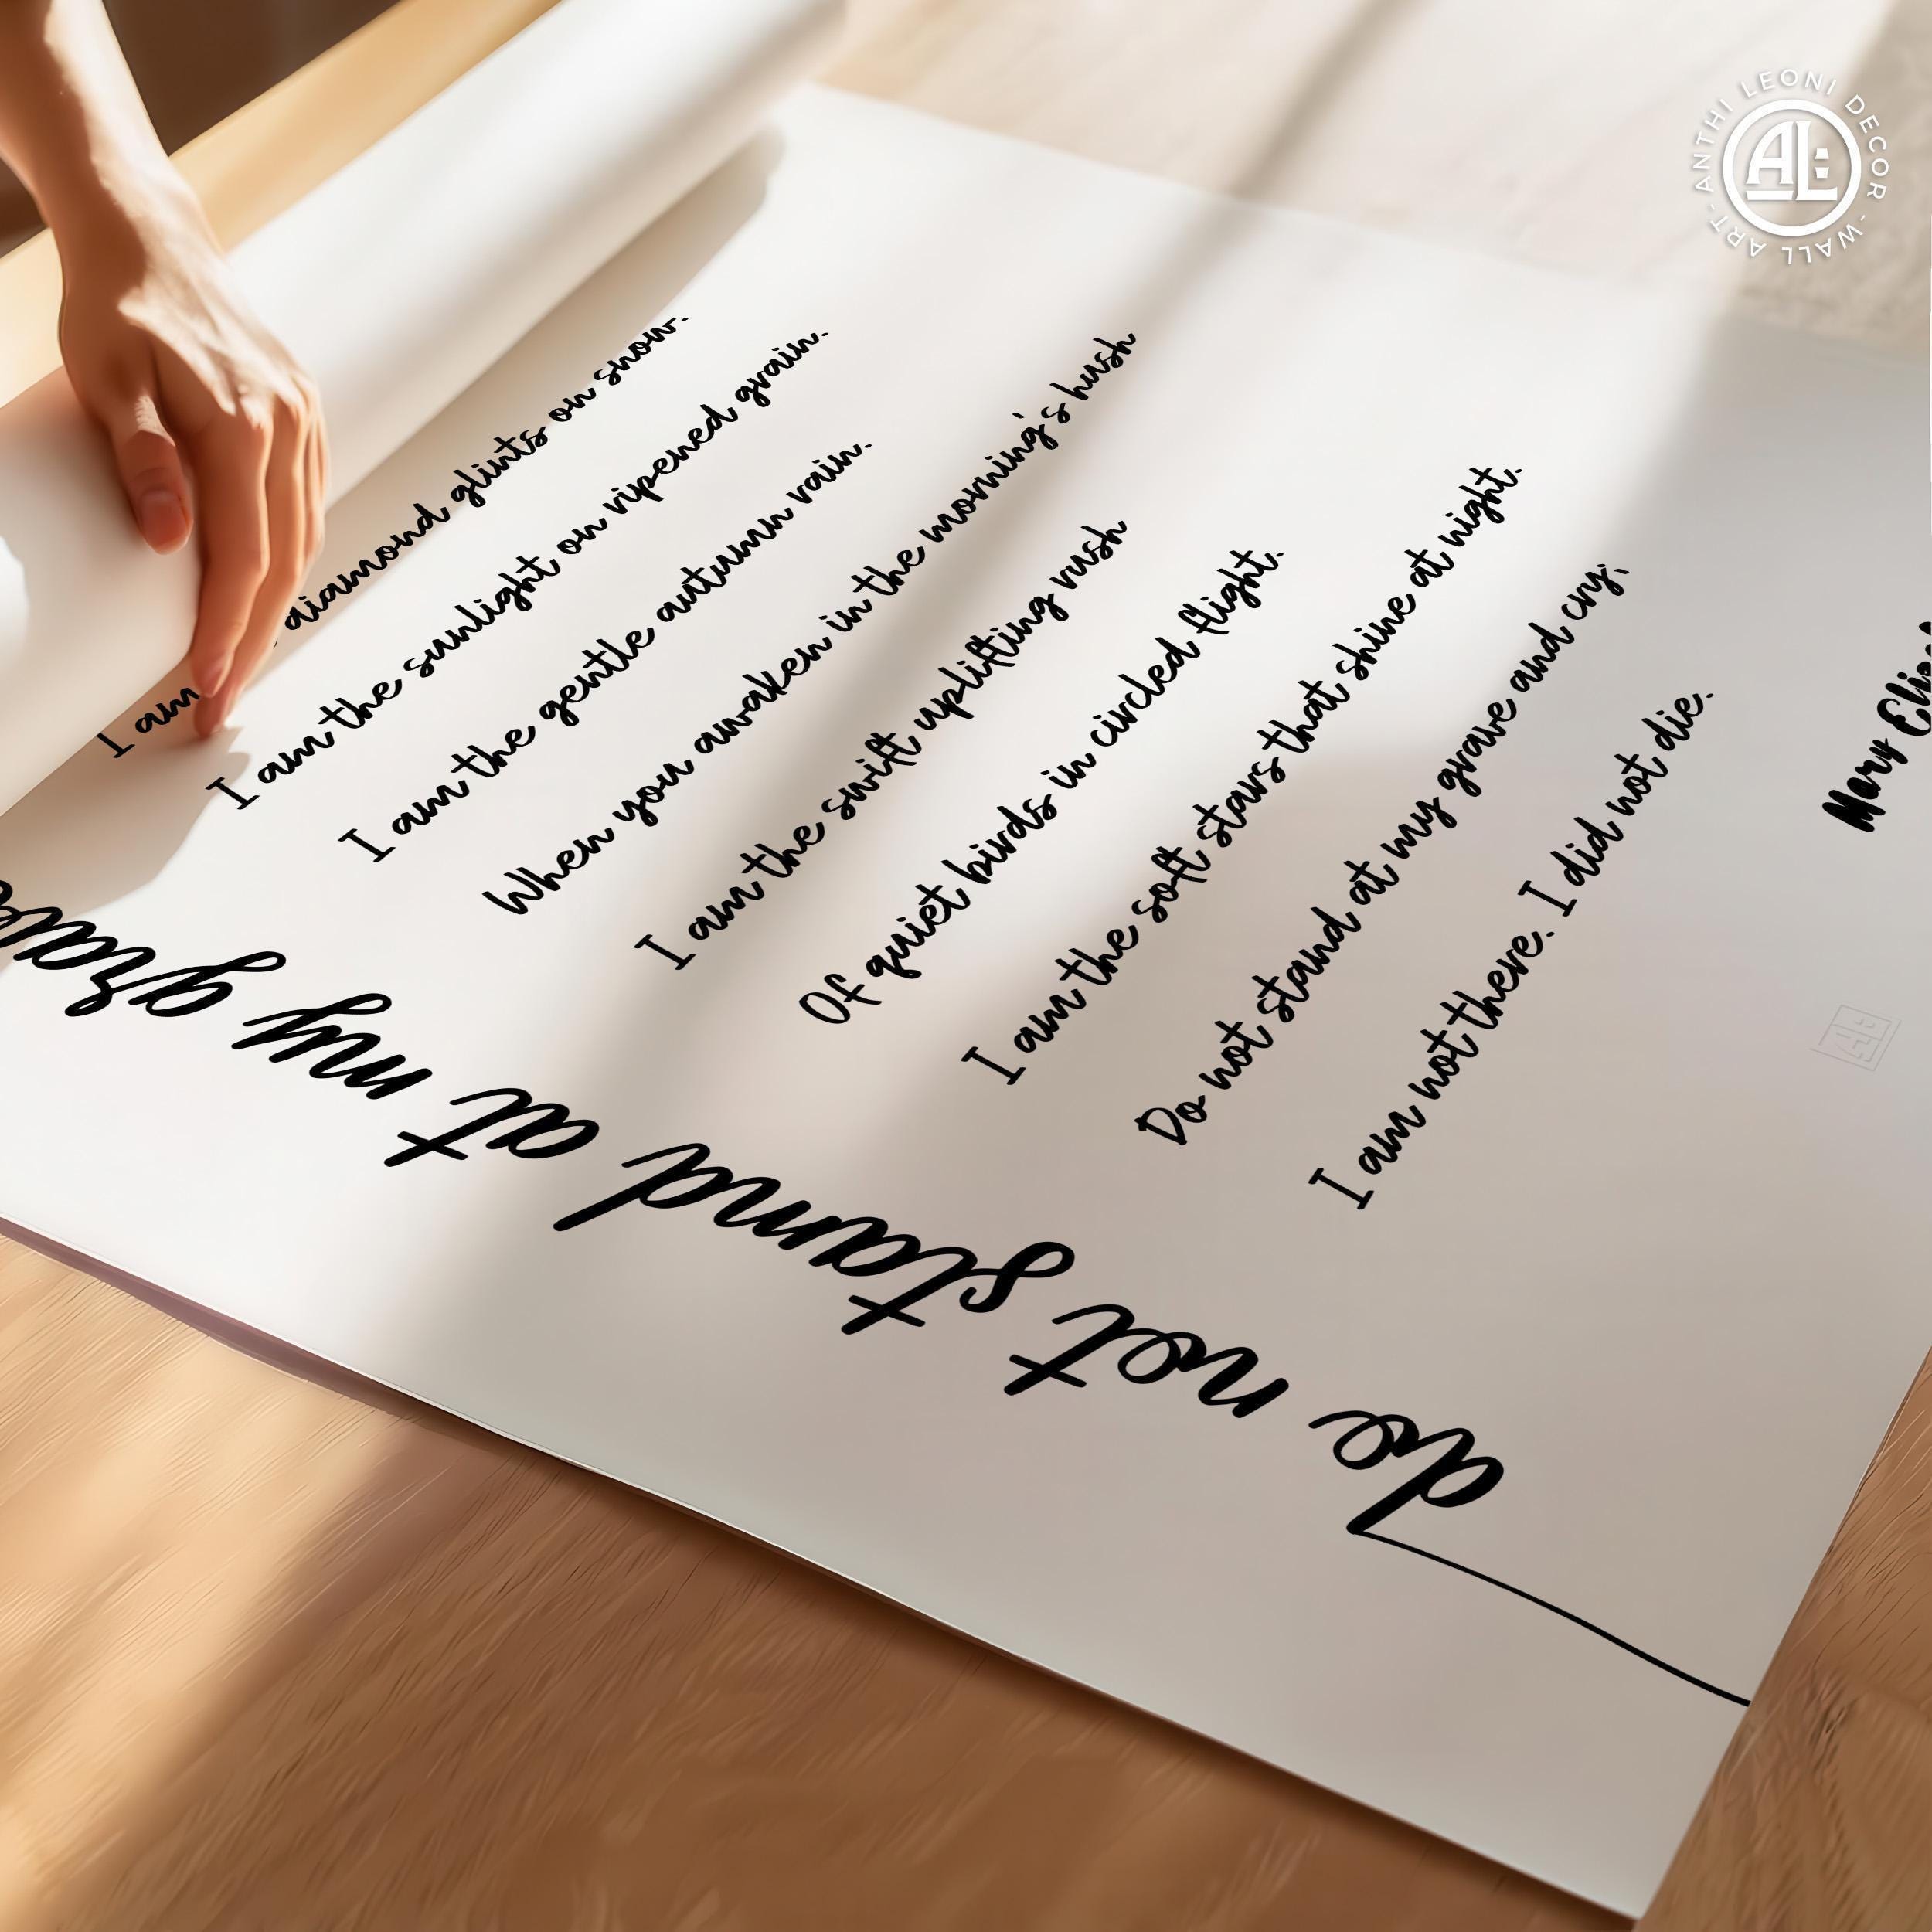 do not stand at my grave
I am diamond glints on snow.
I am the sunlight on ripened grain.
I am the gentle autumn rain.
When you awaken in the morning's hush
I am the swift uplifting rush
Of quiet birds in circled flight.
I am the soft stars that shine at night.
Do not stand at my grave and cry;
I am not there. I did not die.
Mary
ANTHI LEONI DECOR - WALL ART -
AL